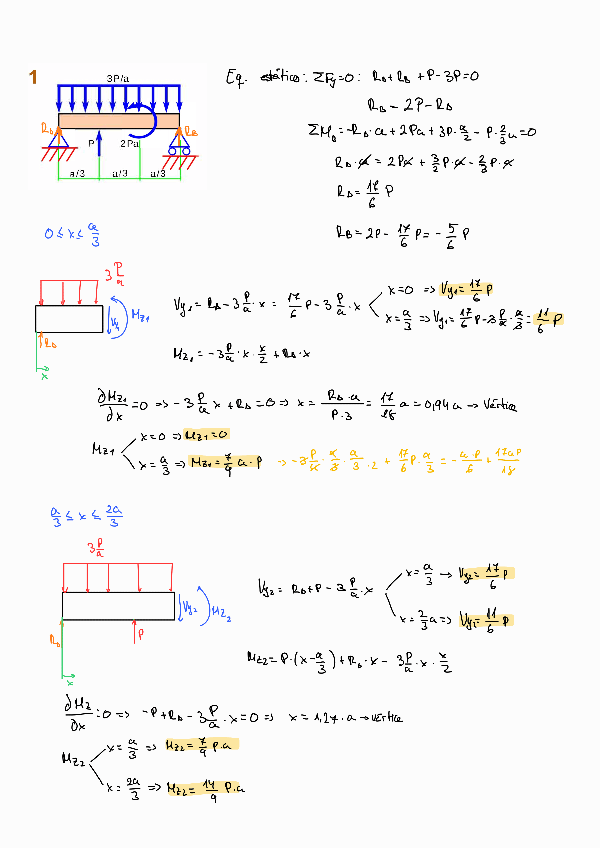 1
3P/a
R_A
R_B
P
2Pa
a/3 a/3 a/3
Eq. estático: ΣFy=0: R_A+R_B+P-3P=0
R_B = 2P-R_A
ΣM_B=-R_A·a+2Pa+3P·a/2-P·2/3a=0
R_A·a = 2Pa+3/2P·a-2/3P·a
R_A=17/6 P
R_B=2P-17/6P=-5/6P
0≤x≤a/3
3P/a
Vy1 Mz1
R_A
x
Vy1=R_A-3P/a·x=17/6P-3P/a·x
x=0 ⇒ Vy1=17/6P
x=a/3 ⇒ Vy1=17/6P-3P/a·a/3=11/6P
Mz1=-3P/a·x·x/2+R_A·x
∂Mz1/∂x=0 ⇒ -3P/a x+R_A=0 ⇒ x=R_A·a/P·3=17/18a=0,94a → Vértice
Mz1
x=0 ⇒ Mz1=0
x=a/3 ⇒ Mz1=7/9a·P ⇒ -3P/a·a/3·a/3·2+17/6P·a/3=-a·P/6+17aP/18
a/3≤x≤2a/3
3P/a
Vy2 Mz2
R_A
P
x
Vy2=R_A+P-3P/a·x
x=a/3 → Vy2=17/6P
x=2/3a ⇒ Vy1=11/6P
Mz2=P·(x-a/3)+R_A·x-3P/a·x·x/2
∂Mz/∂x=0 ⇒ -P+R_A-3P/a·x=0 ⇒ x=1,27·a → vértice
Mz2
x=a/3 ⇒ Mz2=7/9P.a
x=2a/3 ⇒ Mz2=14/9P.a